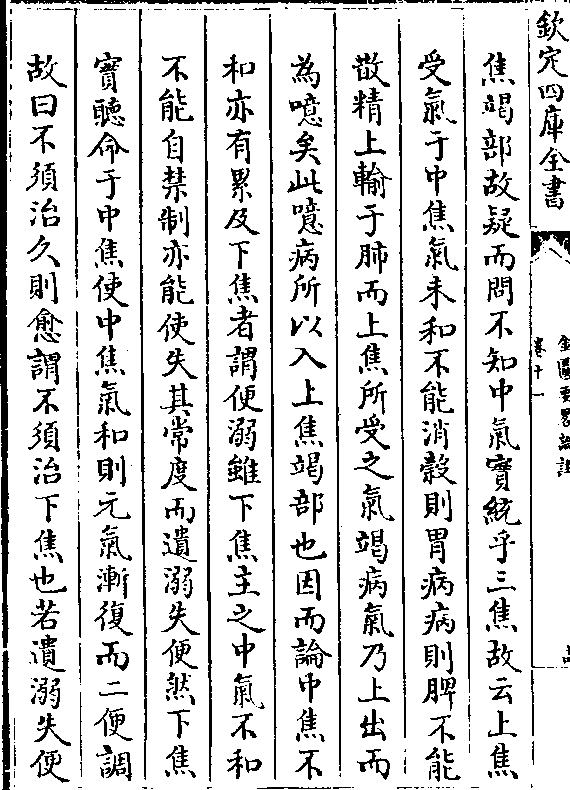 欽定四庫全書
金匱要畧論註
卷十一
焦竭部故疑而問不知中氣實統乎三焦故云上焦
受氣于中焦氣未和不能消穀則胃病病則脾不能
散精上輸于肺而上焦所受之氣竭病氣乃上出而
為噫矣此噫病所以入上焦竭部也因而論中焦不
和亦有累及下焦者謂便溺雖下焦主之中氣不和
不能自禁制亦能使失其常度而遺溺失便然下焦
實聽命于中焦使中焦氣和則元氣漸復而二便調
故曰不須治久則愈謂不須治下焦也若遺溺失便